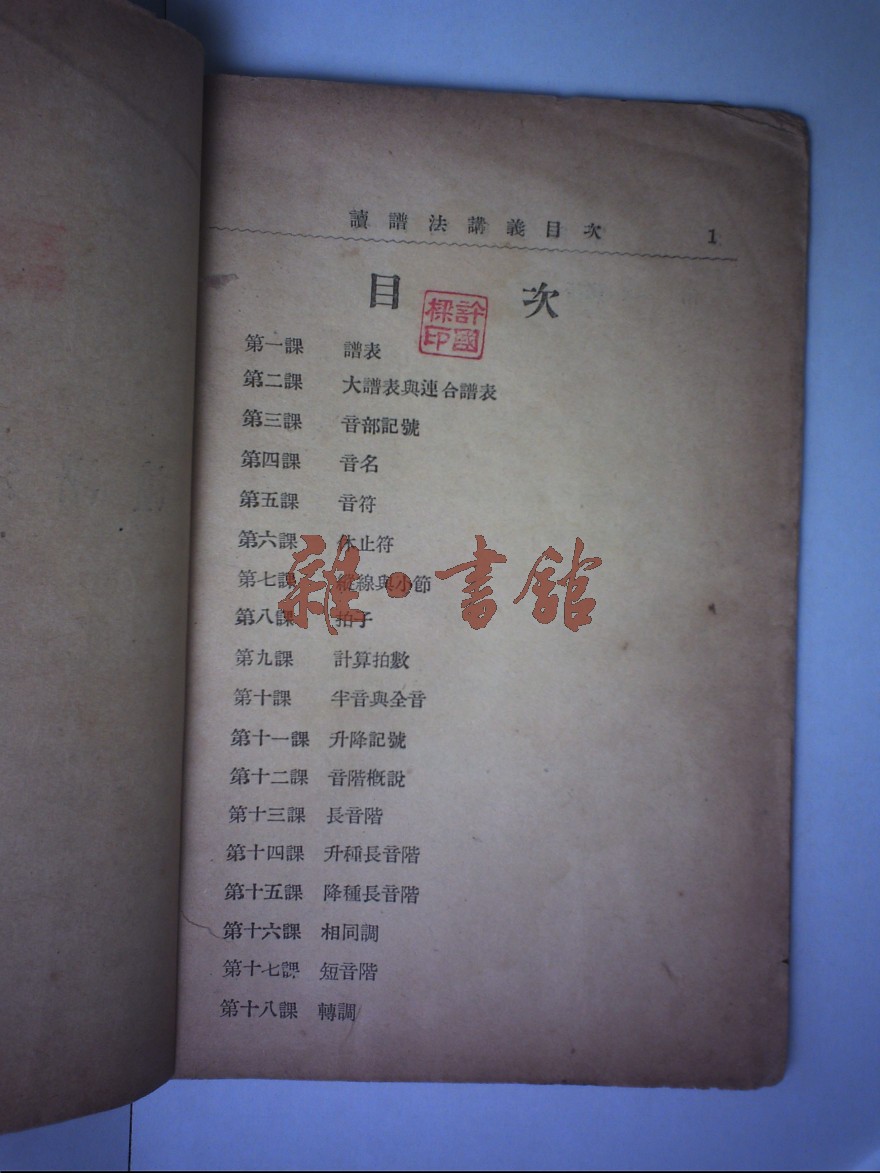 讀譜法講義目次 1
目次
許國樑印
第一課 譜表
第二課 大譜表與連合譜表
第三課 音部記號
第四課 音名
第五課 音符
第六課 休止符
第七課 縱線與小節
第八課 拍子
雜·書館
第九課 計算拍數
第十課 半音與全音
第十一課 升降記號
第十二課 音階概說
第十三課 長音階
第十四課 升種長音階
第十五課 降種長音階
第十六課 相同調
第十七課 短音階
第十八課 轉調